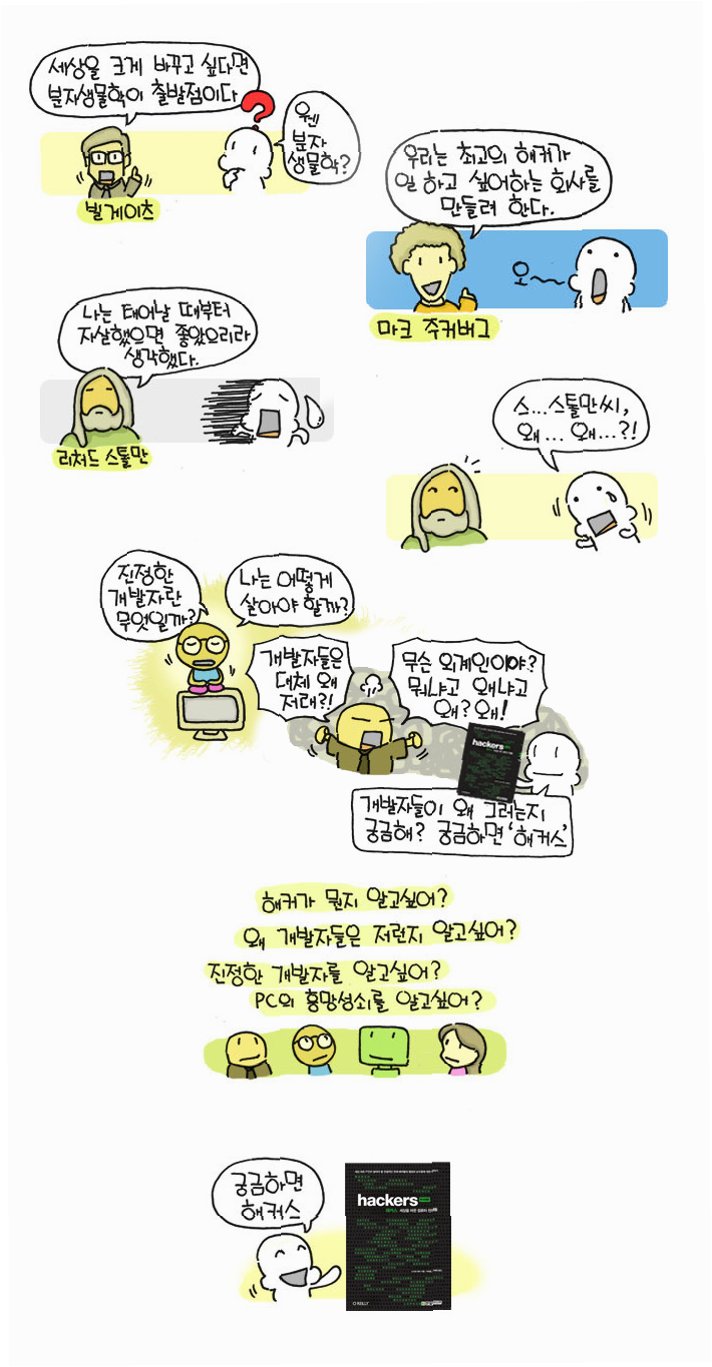 세상을 크게 바꾸고 싶다면
분자생물학이 출발점이다
웬
분자
생물학?
빌게이츠
우리는 최고의 해커가
일 하고 싶어하는 회사를
만들려 한다.
오~~
마크 주커버그
나는 태어날 때부터
자살했으면 좋았으리라
생각했다.
리처드 스톨만
스...스톨만씨,
왜... 왜...?!
진정한
개발자란
무엇일까?
나는 어떻게
살아야 할까?
개발자들은
대체 왜
저래?!
무슨 외계인이야?
뭐냐고 왜냐고
왜? 왜!
hackers
개발자들이 왜 그러는지
궁금해? 궁금하면 '해커스'
해커가 뭔지 알고싶어?
왜 개발자들은 저런지 알고싶어?
진정한 개발자를 알고싶어?
PC의 흥망성쇠를 알고싶어?
궁금하면
해커스
hackers
O'REILLY